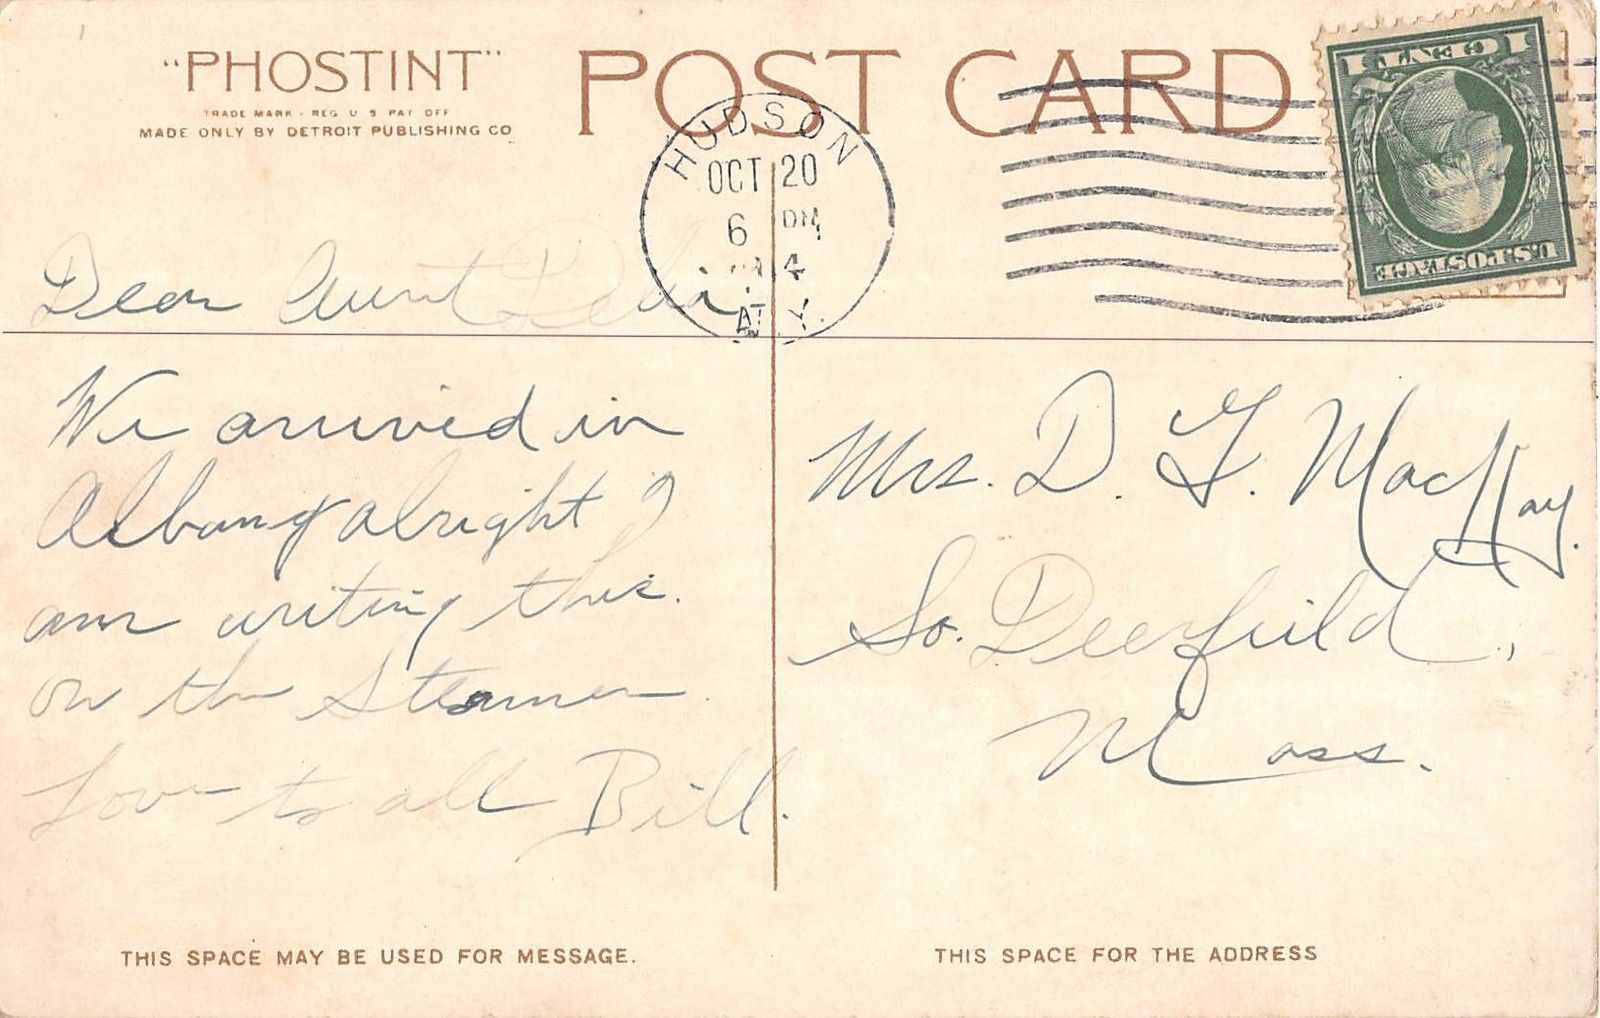 "PHOSTINT"
TRADE MARK - REG U S PAT OFF
MADE ONLY BY DETROIT PUBLISHING CO
POST CARD
HUDSON
OCT 20
6 PM
4
N.Y.
1 CENT 1
U.S. POSTAGE
Dear Aunt
We arrived in
Albany alright I
am writing this.
on the Steamer
Love to all Bill.
Mrs. D. G. MacHay.
So. Deerfield,
Mass.
THIS SPACE MAY BE USED FOR MESSAGE.
THIS SPACE FOR THE ADDRESS